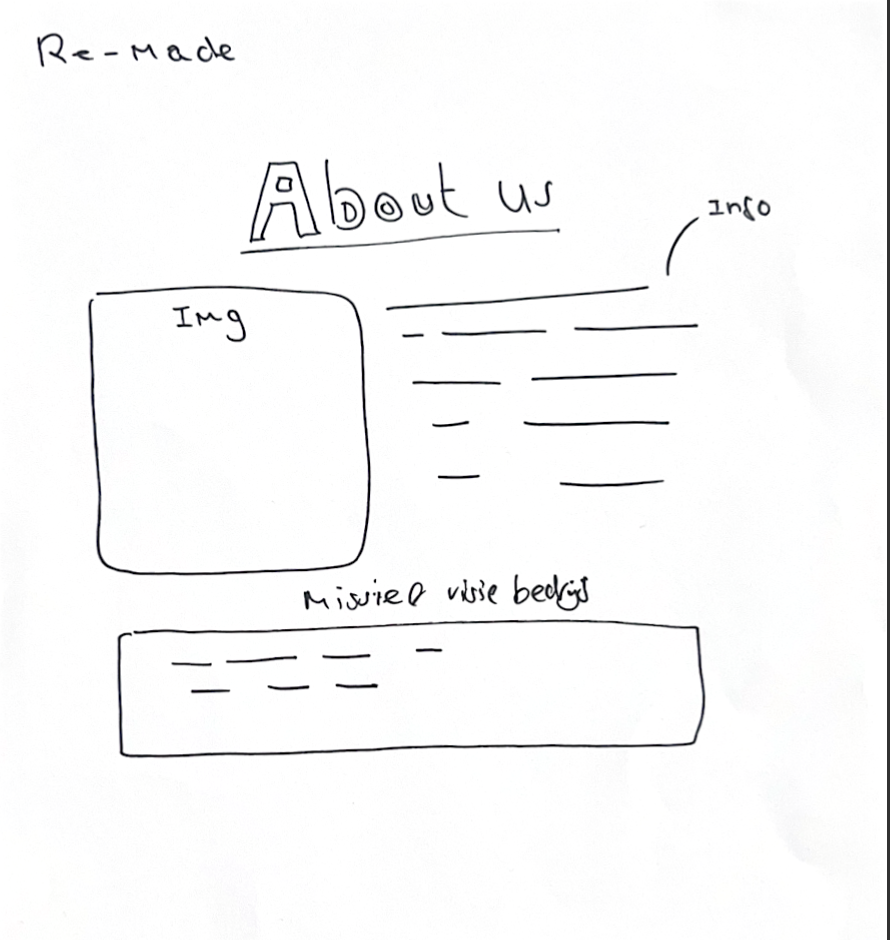 Re-made
About us
Info
Img
visie bedrijf